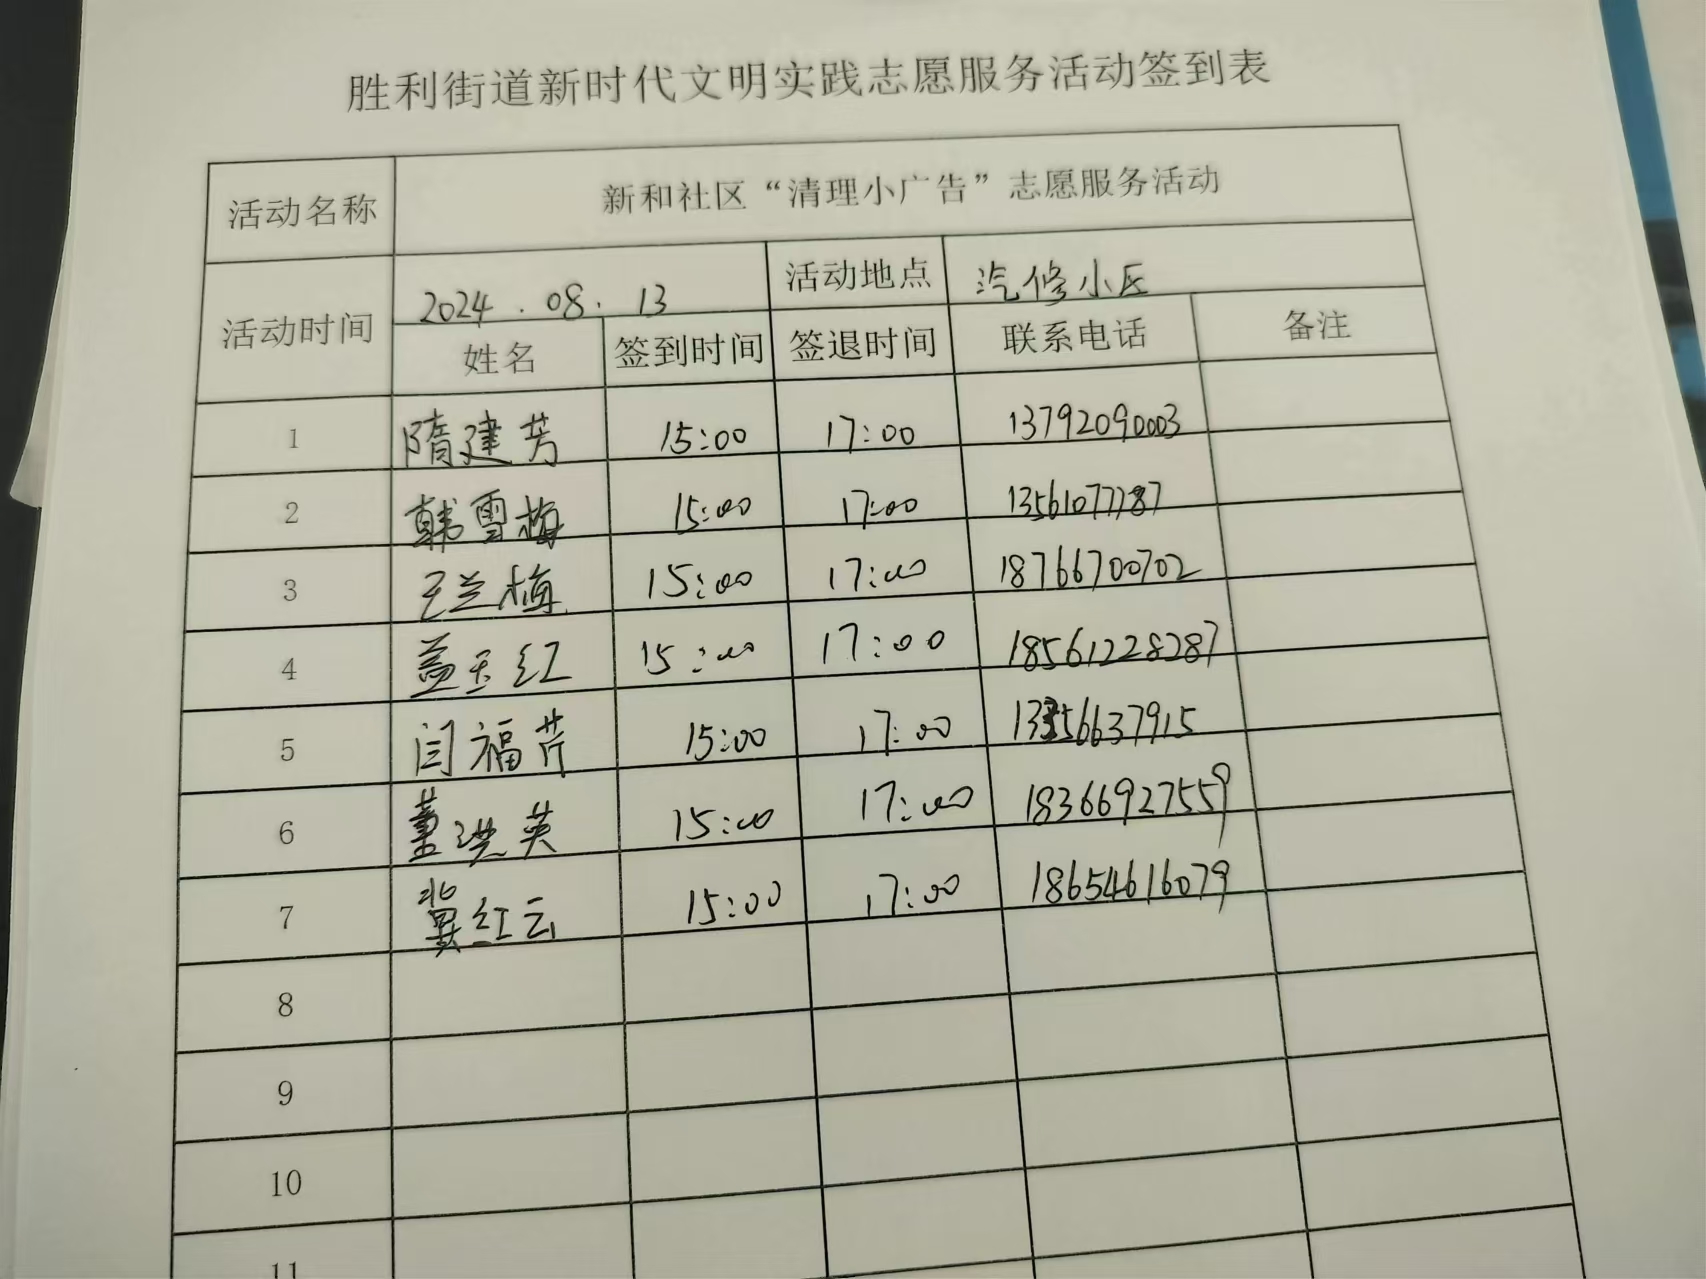 胜利街道新时代文明实践志愿服务活动签到表
活动名称 新和社区“清理小广告”志愿服务活动
活动时间 2024.08.13 活动地点 汽修小区
姓名 签到时间 签退时间 联系电话 备注
1 隋建芳 15:00 17:00 13792090003
2 韩雪梅 15:00 17:00 13561077787
3 王兰梅 15:00 17:00 18766700702
4 盖玉红 15:00 17:00 18561228287
5 闫福芹 15:00 17:00
6 董洪英 15:00 17:00 18366927559
7 冀红云 15:00 17:00 18654616079
8
9
10
11